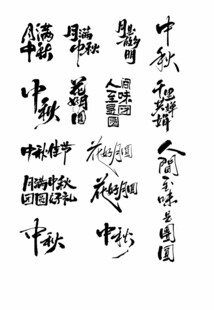 月满中秋
月满中秋
月是故乡明
中秋
中秋
花好月圆
人间至味是团圆
千里共婵娟
中秋佳节
花好月圆
人間至味是團圓
月满中秋
团圆好礼
花好月圆
中秋
中秋